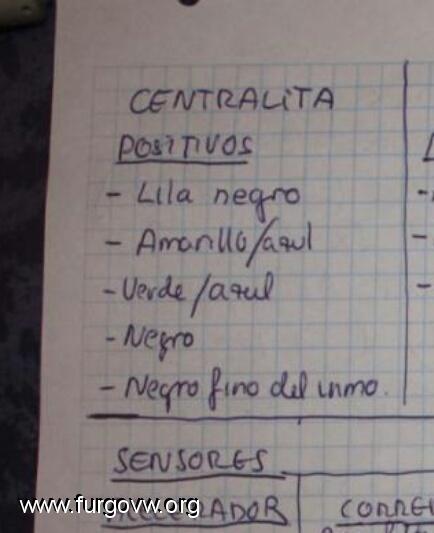 CENTRALITA
POSITIVOS
- Lila negro
- Amarillo/azul
- Verde/azul
- Negro
- Negro fino del inmo.
SENSORES
www.furgovw.org